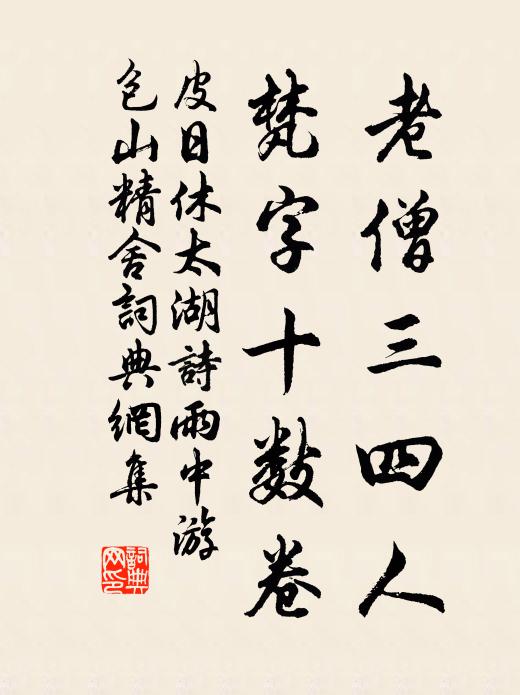 老僧三四人
梵字十數卷
皮日休太湖詩雨中游
包山精舍詞典網集
詞典网印